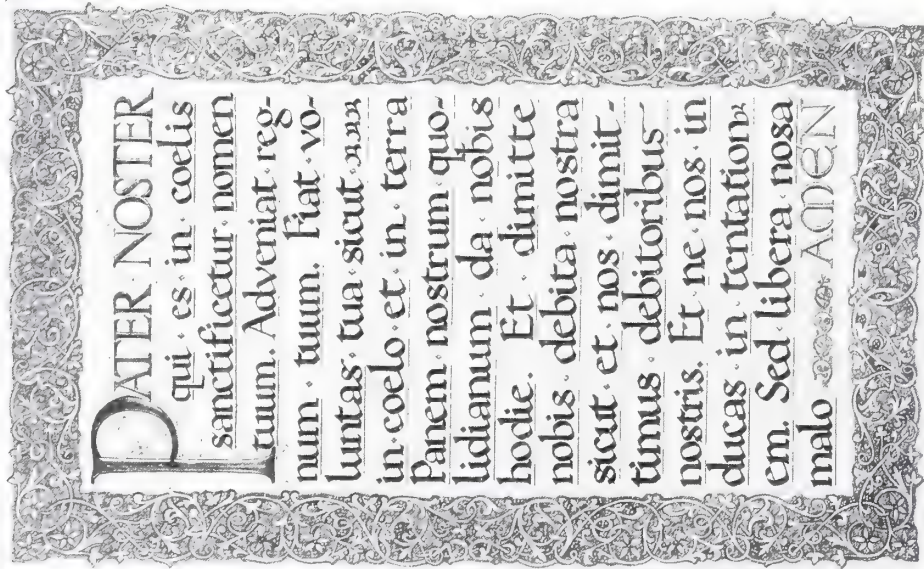 PATER NOSTER
qui · es · in · coelis
sanctificetur · nomen
tuum. Adveniat · reg-
num · tuum. Fiat · vo-
luntas · tua · sicut ·
in · coelo · et · in · terra
Panem · nostrum · quo-
tidianum · da · nobis
hodie. Et · dimitte
nobis · debita · nostra
sicut · et · nos · dimit-
timus · debitoribus
nostris. Et · ne · nos · in
ducas · in · tentation
em. Sed · libera · nosa
malo AMEN